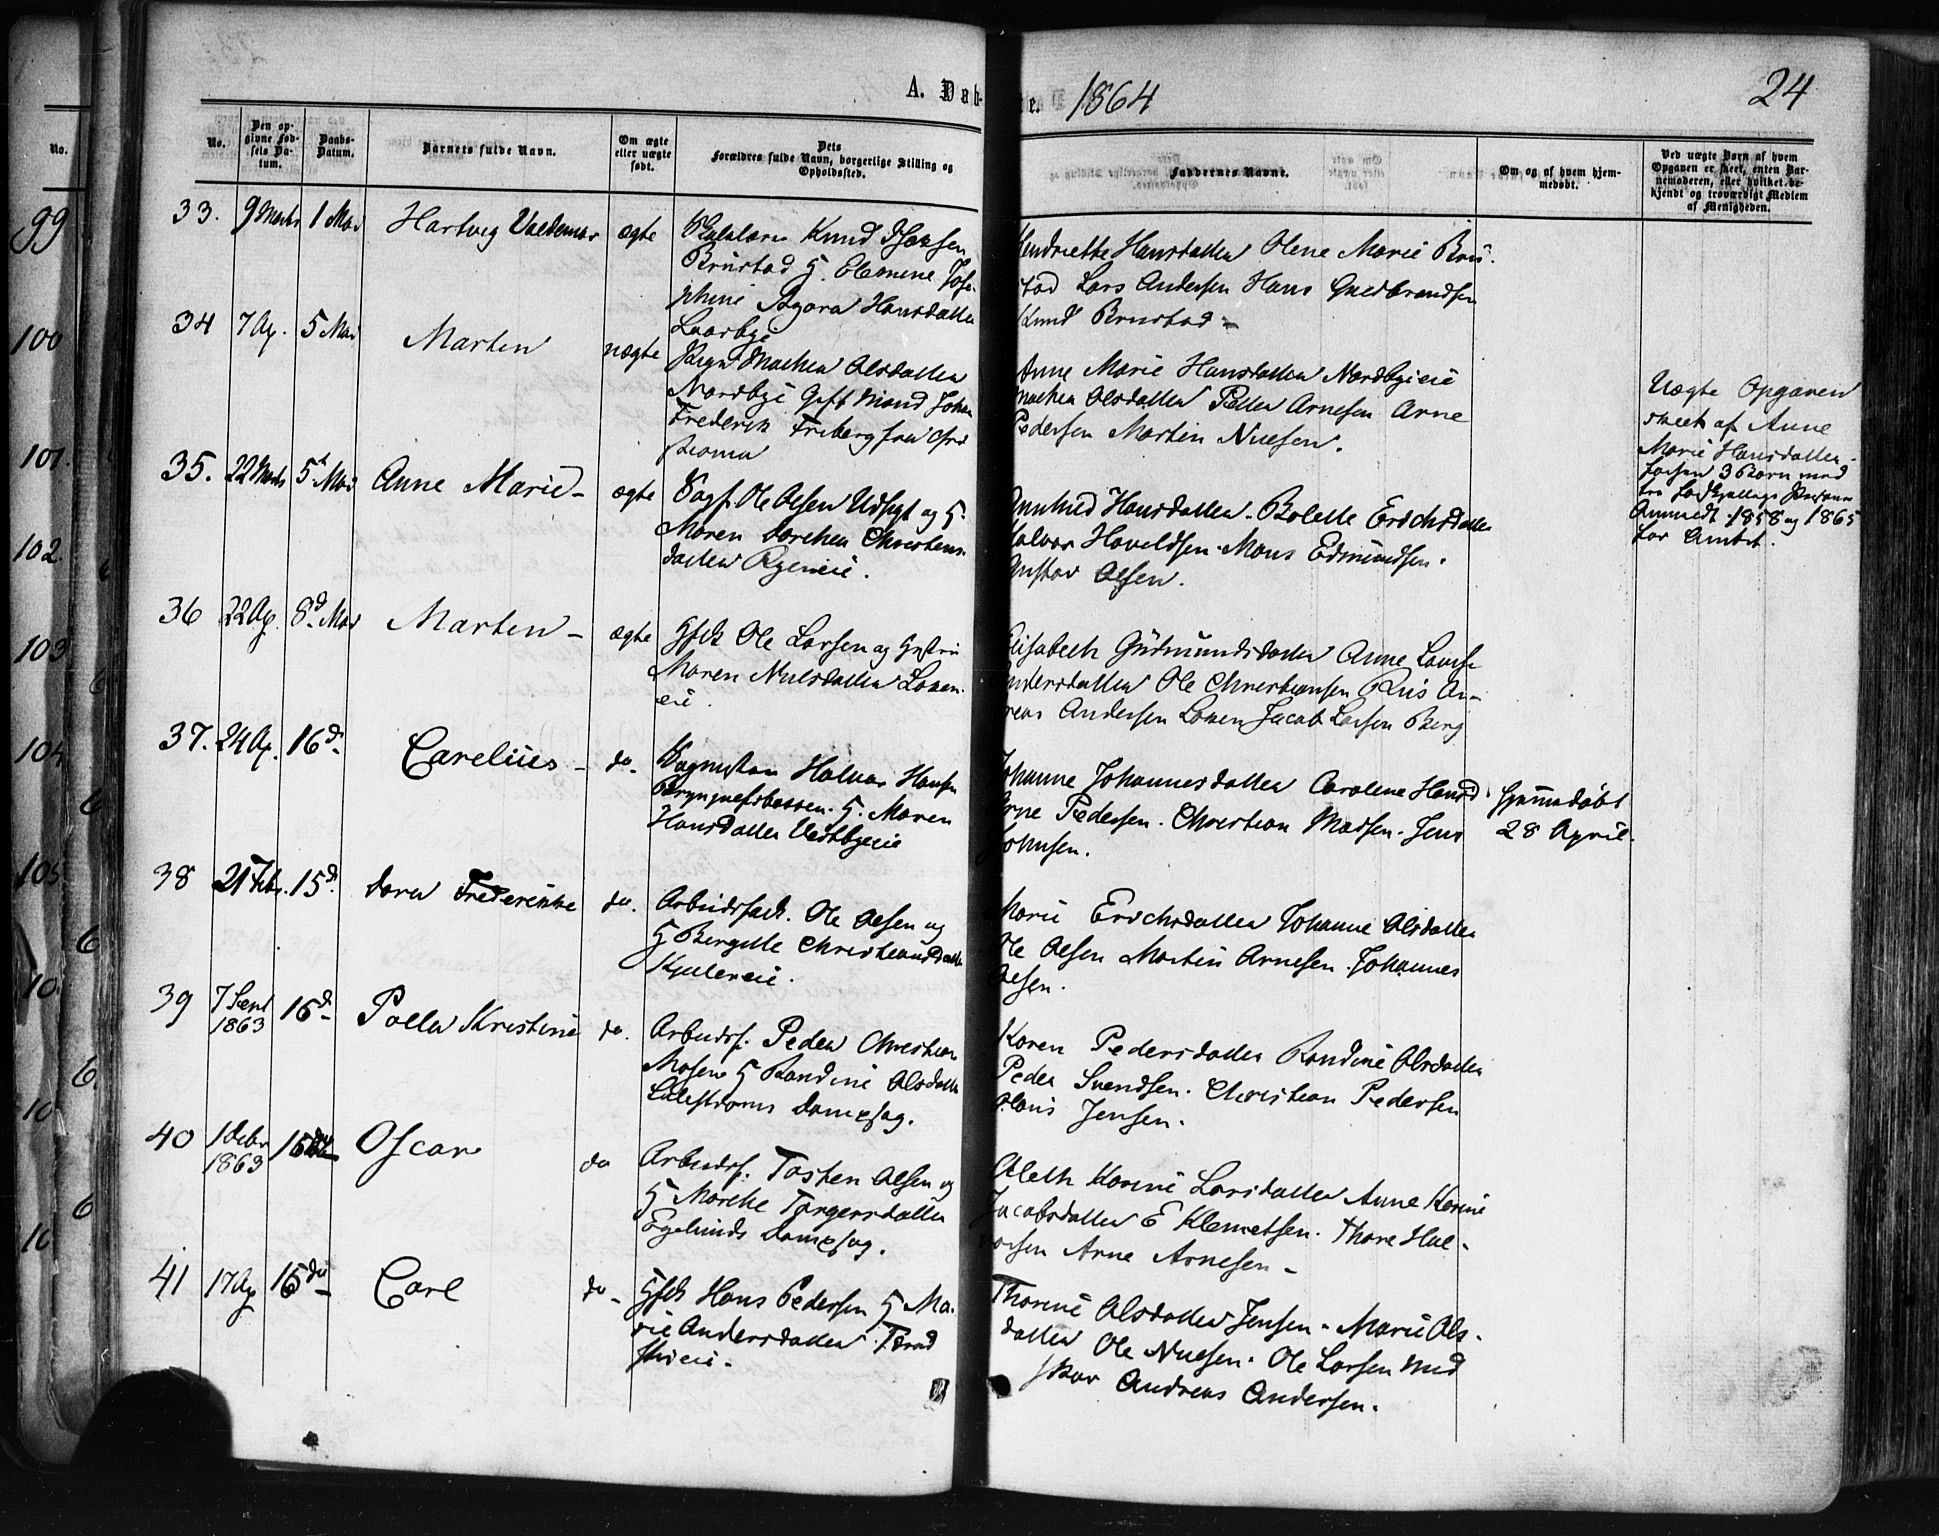 A. Døb-
te. 1864
24
No.
Den opgivne Fødsels Datum.
Daabs-Datum.
Barnets fulde Navn.
Om ægte eller uægte født.
Dets Forældres fulde Navn, borgerlige Stilling og Opholdssted.
Faddernes Navne.
Om og af hvem hjemmedøbt.
Ved uægte Børn af hvem Opgaven er skeet, enten Barnemoderen, eller hvilket bekjendt og troværdigt Medlem af Menigheden.
33. 9 Marts 1 Mai Hartvig Valdemar ægte
Knud
Brustad G. Elemine Jose-
phine Hansdatter
Henriette Hansdatter Olene Marie Bru-
stad Lars Andersen Hans Guldbrandsen
Knud Brustad
34 7 Ap. 5 Mai Marten uægte
Pige Mathea Olsdatter
Nordbye Gift Mand Johan
Frederik Friberg fra Chri
stiania
Anne Marie Hansdatter Nordbyeie
Mathea Olsdatter Petter Arnesen Arne
Pedersen Martin Nielsen.
Uægte Opgaven
skeet af Anne
Marie Hansdatter
3 Børn med
1858 og 1865
35. 22 Marts 5 Mai Anne Marie - ægte
Ole Olsen og G.
Maren Dorthea Christens
datter Rygeneie.
Gunhild Hansdatter. Bolette Erichsdatter
Halvor Haveldsen. Mons Edmundsen.
Gustav Olsen.
36 22 Ap. 8d Mai Marten - ægte
Gfsk Ole Larsen og Gustru
Maren Nielsdatter Loken-
eie.
Elisabeth Gudmundsdatter Anne Lovise
Andersdatter Ole Christiansen Riis An-
dreas Andersen Loken Jacob Larsen Berg
37. 24 Ap. 16d Carelius - do.
Halvor Hansen
G. Maren
Hansdatter Vestbyeie
Johanne Johannesdatter Caroline Hansd
Arne Pedersen. Christian Madsen. Jens
Johnsen.
Hjemmedøbt
28 April.
38 21 Febr. 15d. Dorea Frederikke do.
Arbeidsfsk. Ole Olsen og
G Bergitte Christiansdatter
Marie Erichsdatter Johanne Olsdatter
Ole Olsen Martin Arnesen Johannes
Olsen.
39 7 Sept 1863 16d Kristine do.
Arbeidsf. Peder Christian
G Randine Olsdatter
Dampsag.
Karen Pedersdatter Randine Olsdatter
Peder Svendsen. Christian Pedersen
Hans Jensen.
40 1 Decbr 1863 16 do Oscar do
Arbeidsf. Tosten Olsen og
G Marthe Torgersdatter
Engelunds Dampsag.
Aleth Karine Larsdatter Anne Karine
Jacobsdatter E Klemetsen. Thore Hal-
vorsen Arne Arnesen -
41 17 Ap 16 do Carl do -
Gfsk Hans Pedersen G Ma-
rie Andersdatter
Thorine Olsdatter Jensen - Marie Ols-
datter Ole Nielsen. Ole Larsen Mid
skov Andreas Andersen.
No.
99
100
101.
102.
103
104
105
10
10
10
6
6
6
6
6
6